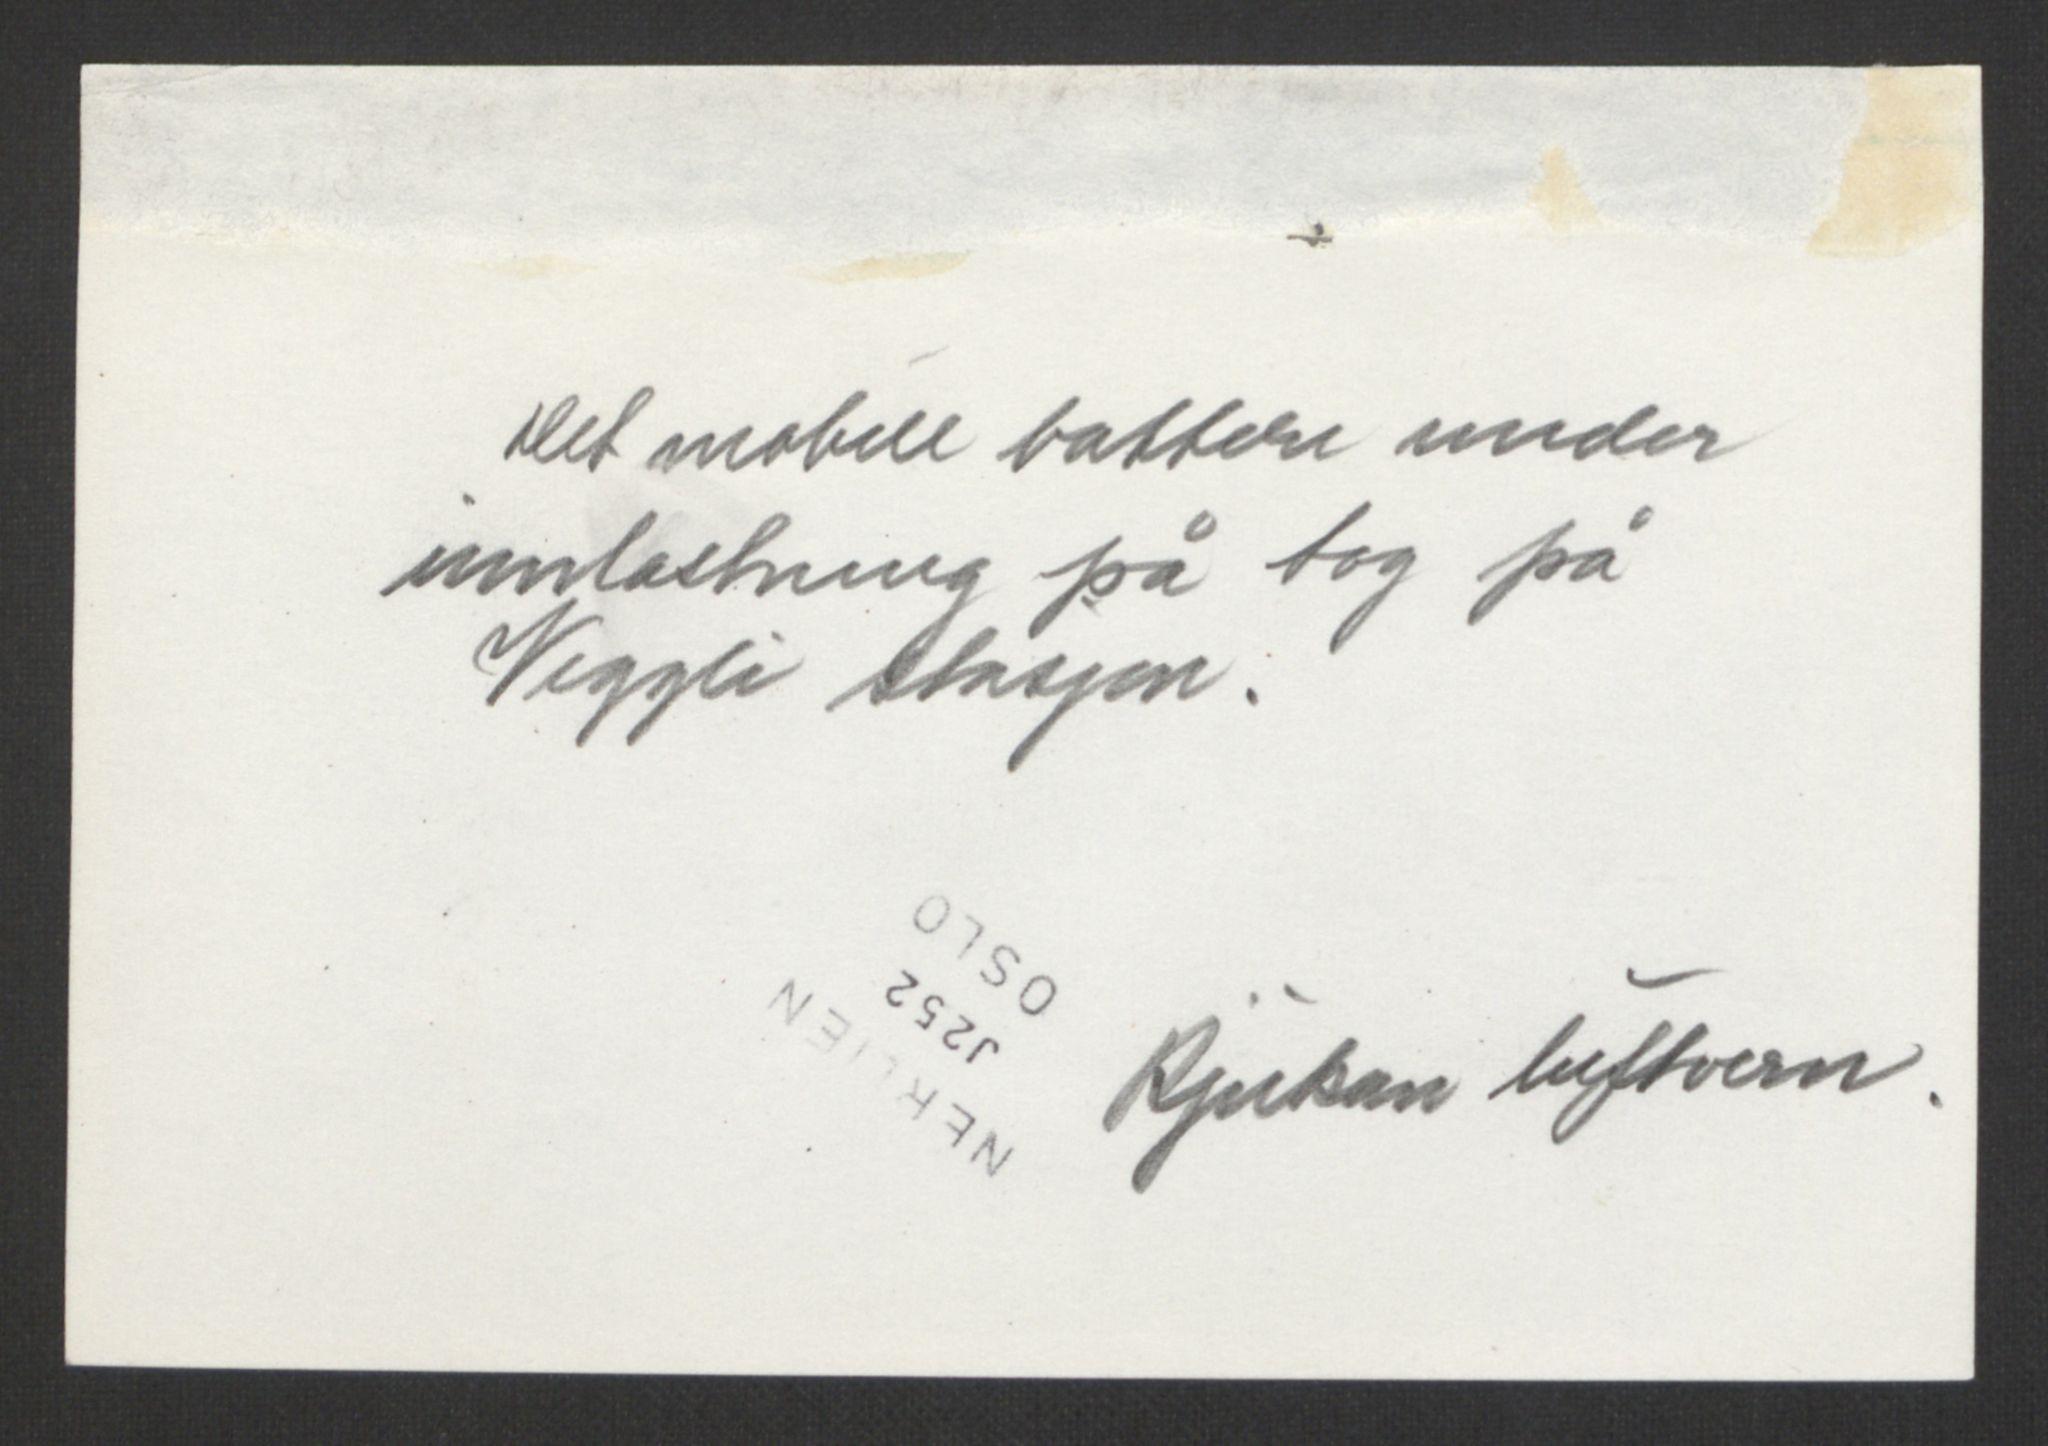 Det mobile batteri under
innlastning på tog på
Veggli stasjon.
OSLO
J252
NERLIEN
Rjukan luftvern.